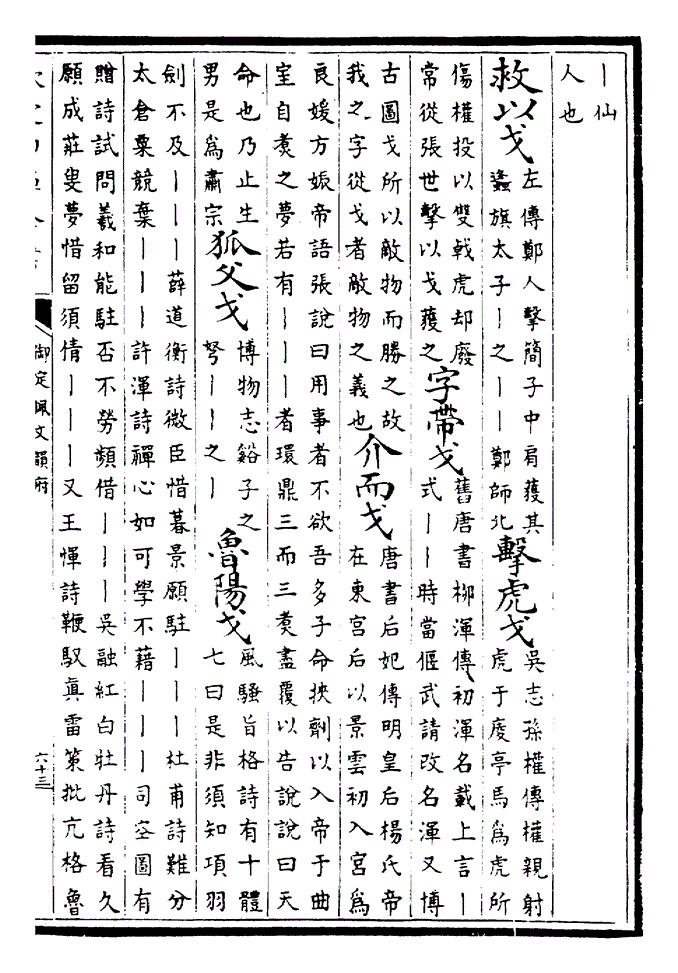 ｜仙
人也
救以戈
左傳鄭人擊簡子中肩獲其
蠭旗太子｜之｜｜鄭師北
擊虎戈
吳志孫權傳權親射
虎于庱亭馬為虎所
傷權投以雙戟虎却廢
常從張世擊以戈獲之
字帶戈
舊唐書柳渾傳初渾名載上言｜
式｜｜時當偃武請改名渾又博
古圖戈所以敵物而勝之故
我之字從戈者敵物之義也
介而戈
唐書后妃傳明皇后楊氏帝
在東宮后以景雲初入宮為
良媛方娠帝語張說曰用事者不欲吾多子命挾劑以入帝于曲
室自煑之夢若有｜｜｜者環鼎三而三煑盡覆以告說說曰天
命也乃止生
男是為肅宗
狐父戈
博物志谿子之
弩｜｜之｜
魯陽戈
風騷旨格詩有十體
七曰是非須知項羽
劍不及｜｜｜薛道衡詩微臣惜暮景願駐｜｜｜杜甫詩難分
太倉粟競棄｜｜｜許渾詩禪心如可學不藉｜｜｜司空圖有
贈詩試問羲和能駐否不勞頻借｜｜｜吳融紅白牡丹詩看久
願成莊叟夢惜留須倩｜｜｜又王惲詩鞭馭眞雷策批亢格魯
御定佩文韻府
六十三